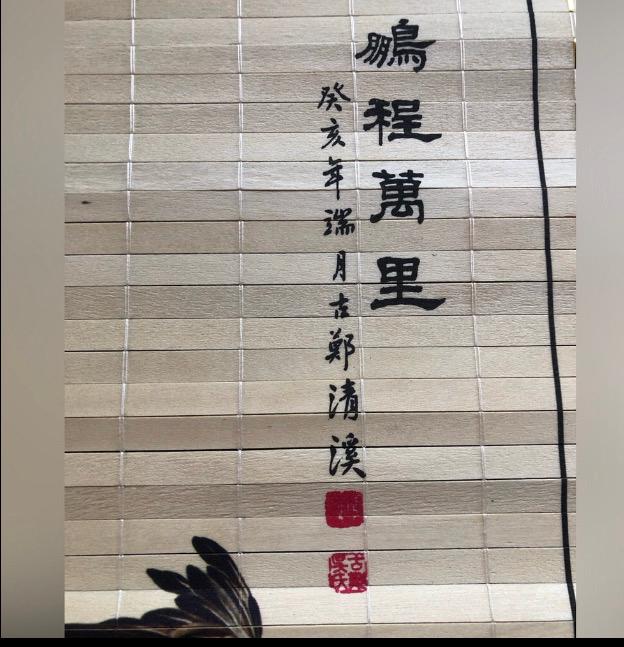 鵬程萬里
癸亥年端月古鄭清溪